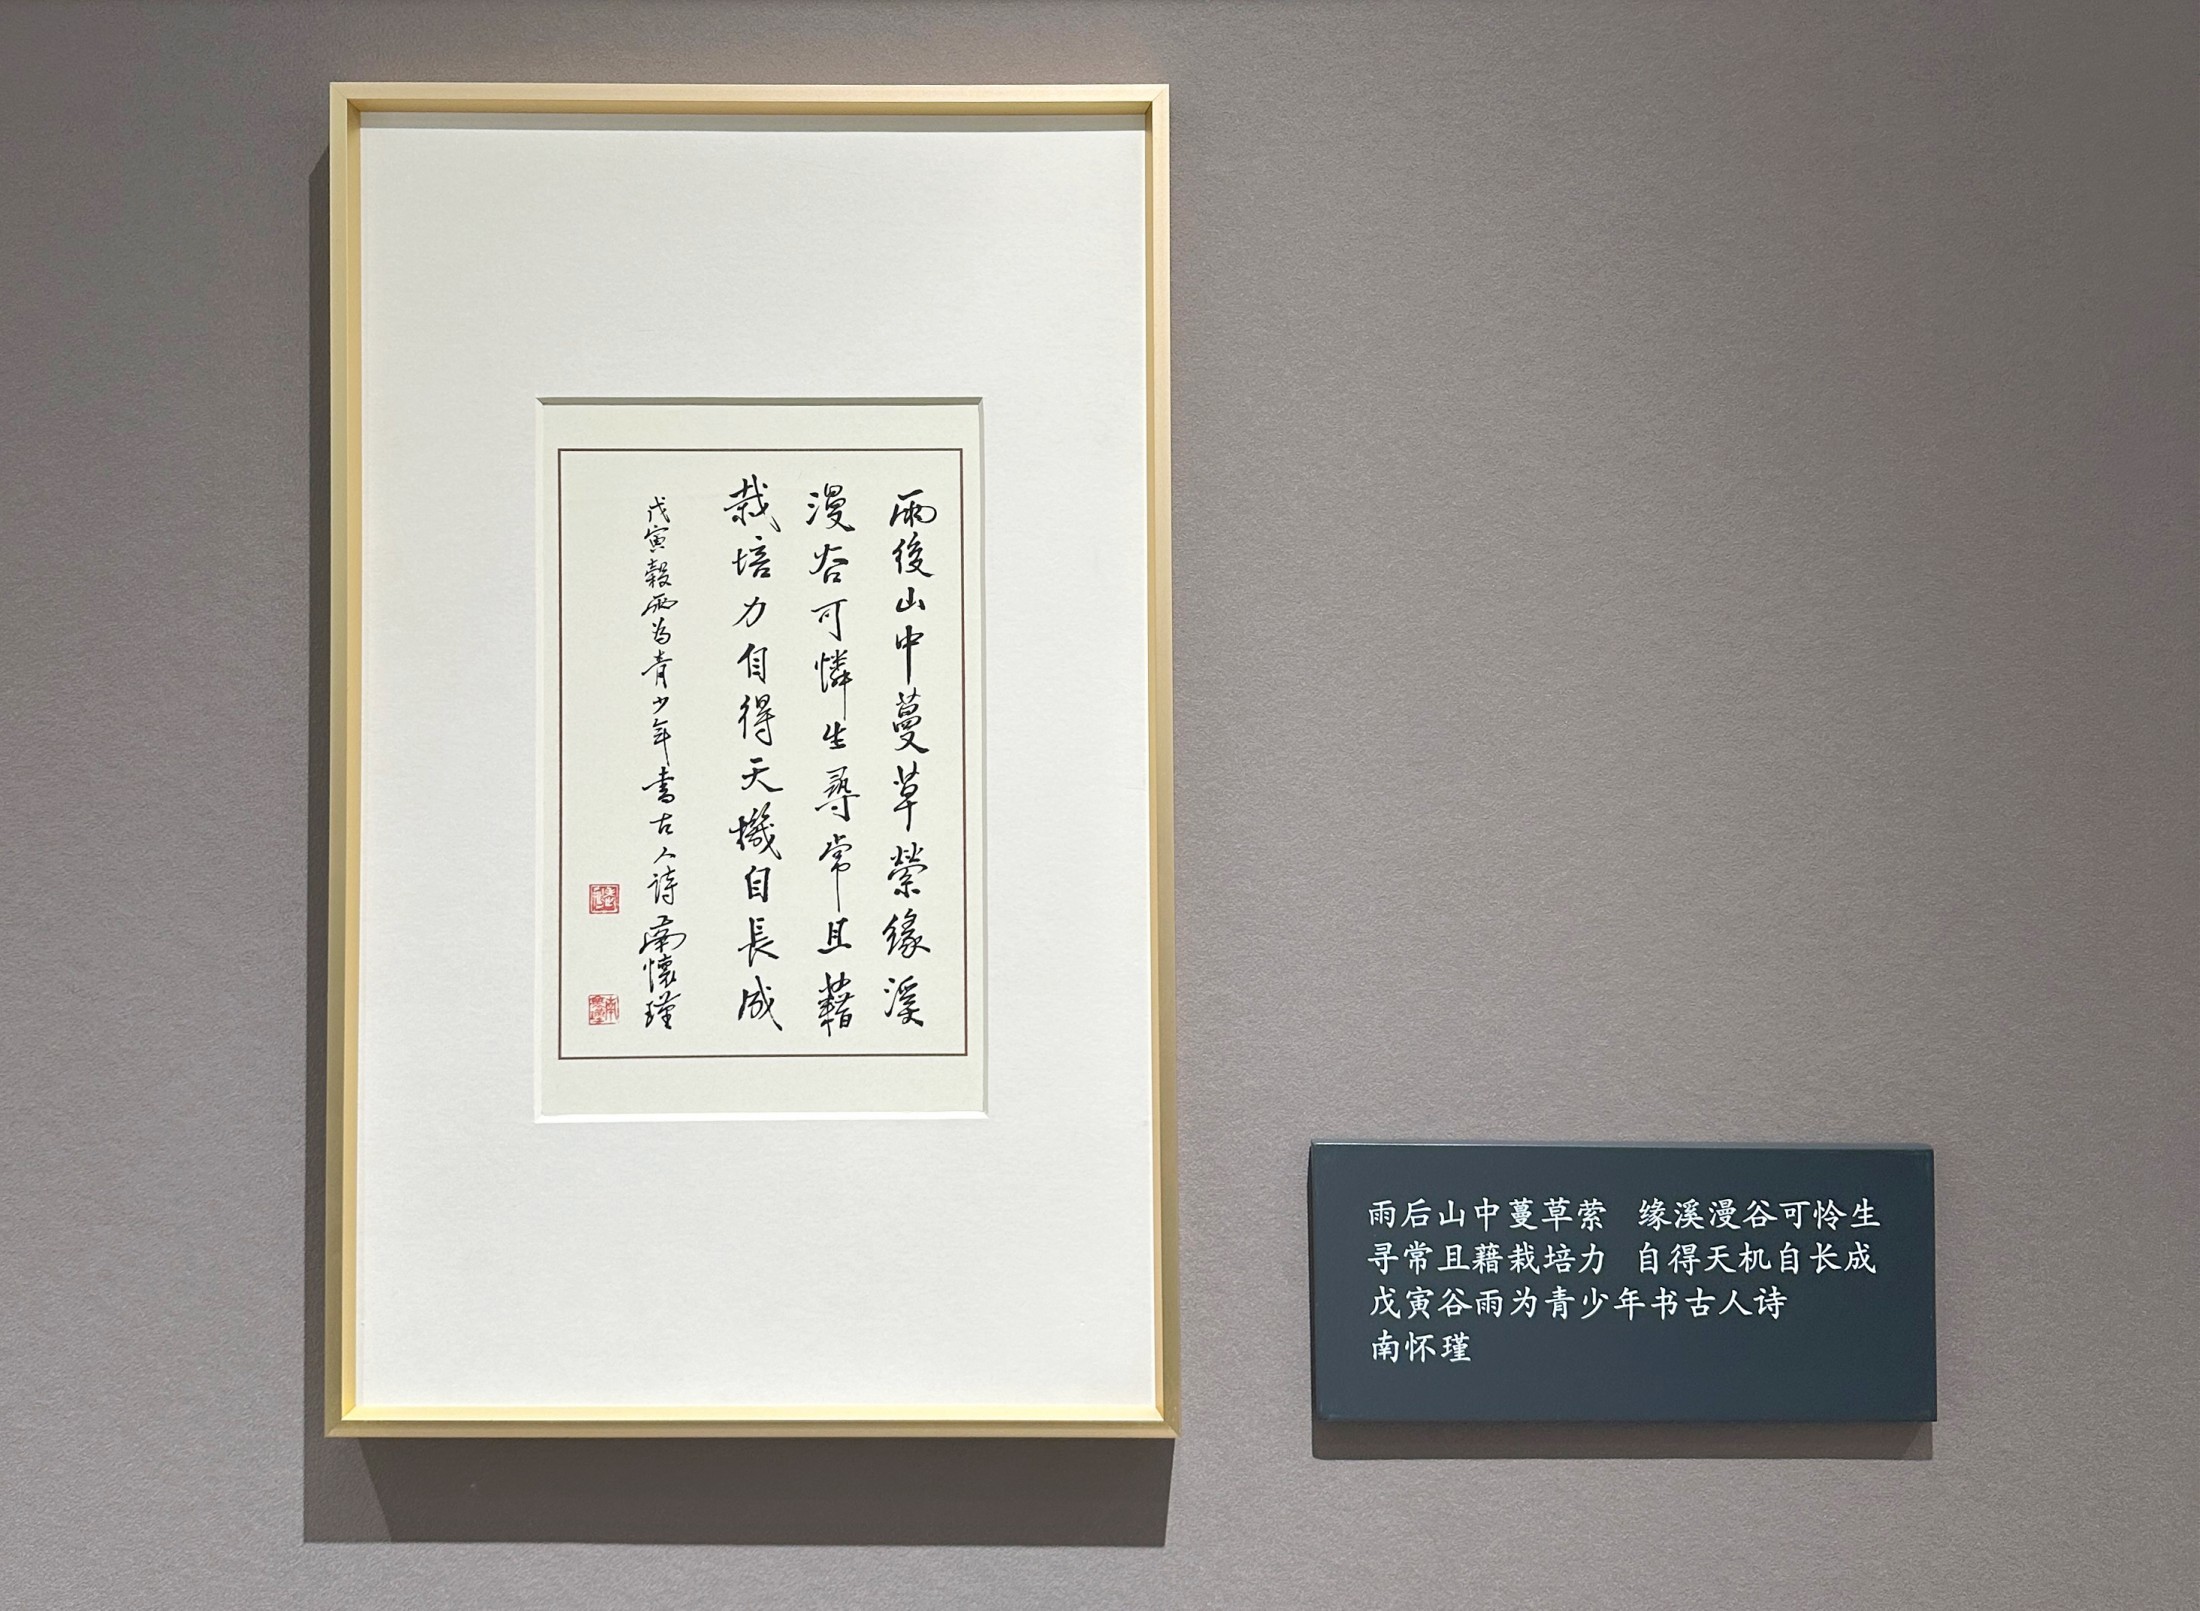 雨後山中蔓草縈緣溪
漫谷可憐生尋常且藉
栽培力自得天機自長成
戊寅穀雨為青少年書古人詩 南懷瑾
雨后山中蔓草萦 缘溪漫谷可怜生
寻常且藉栽培力 自得天机自长成
戊寅谷雨为青少年书古人诗
南怀瑾